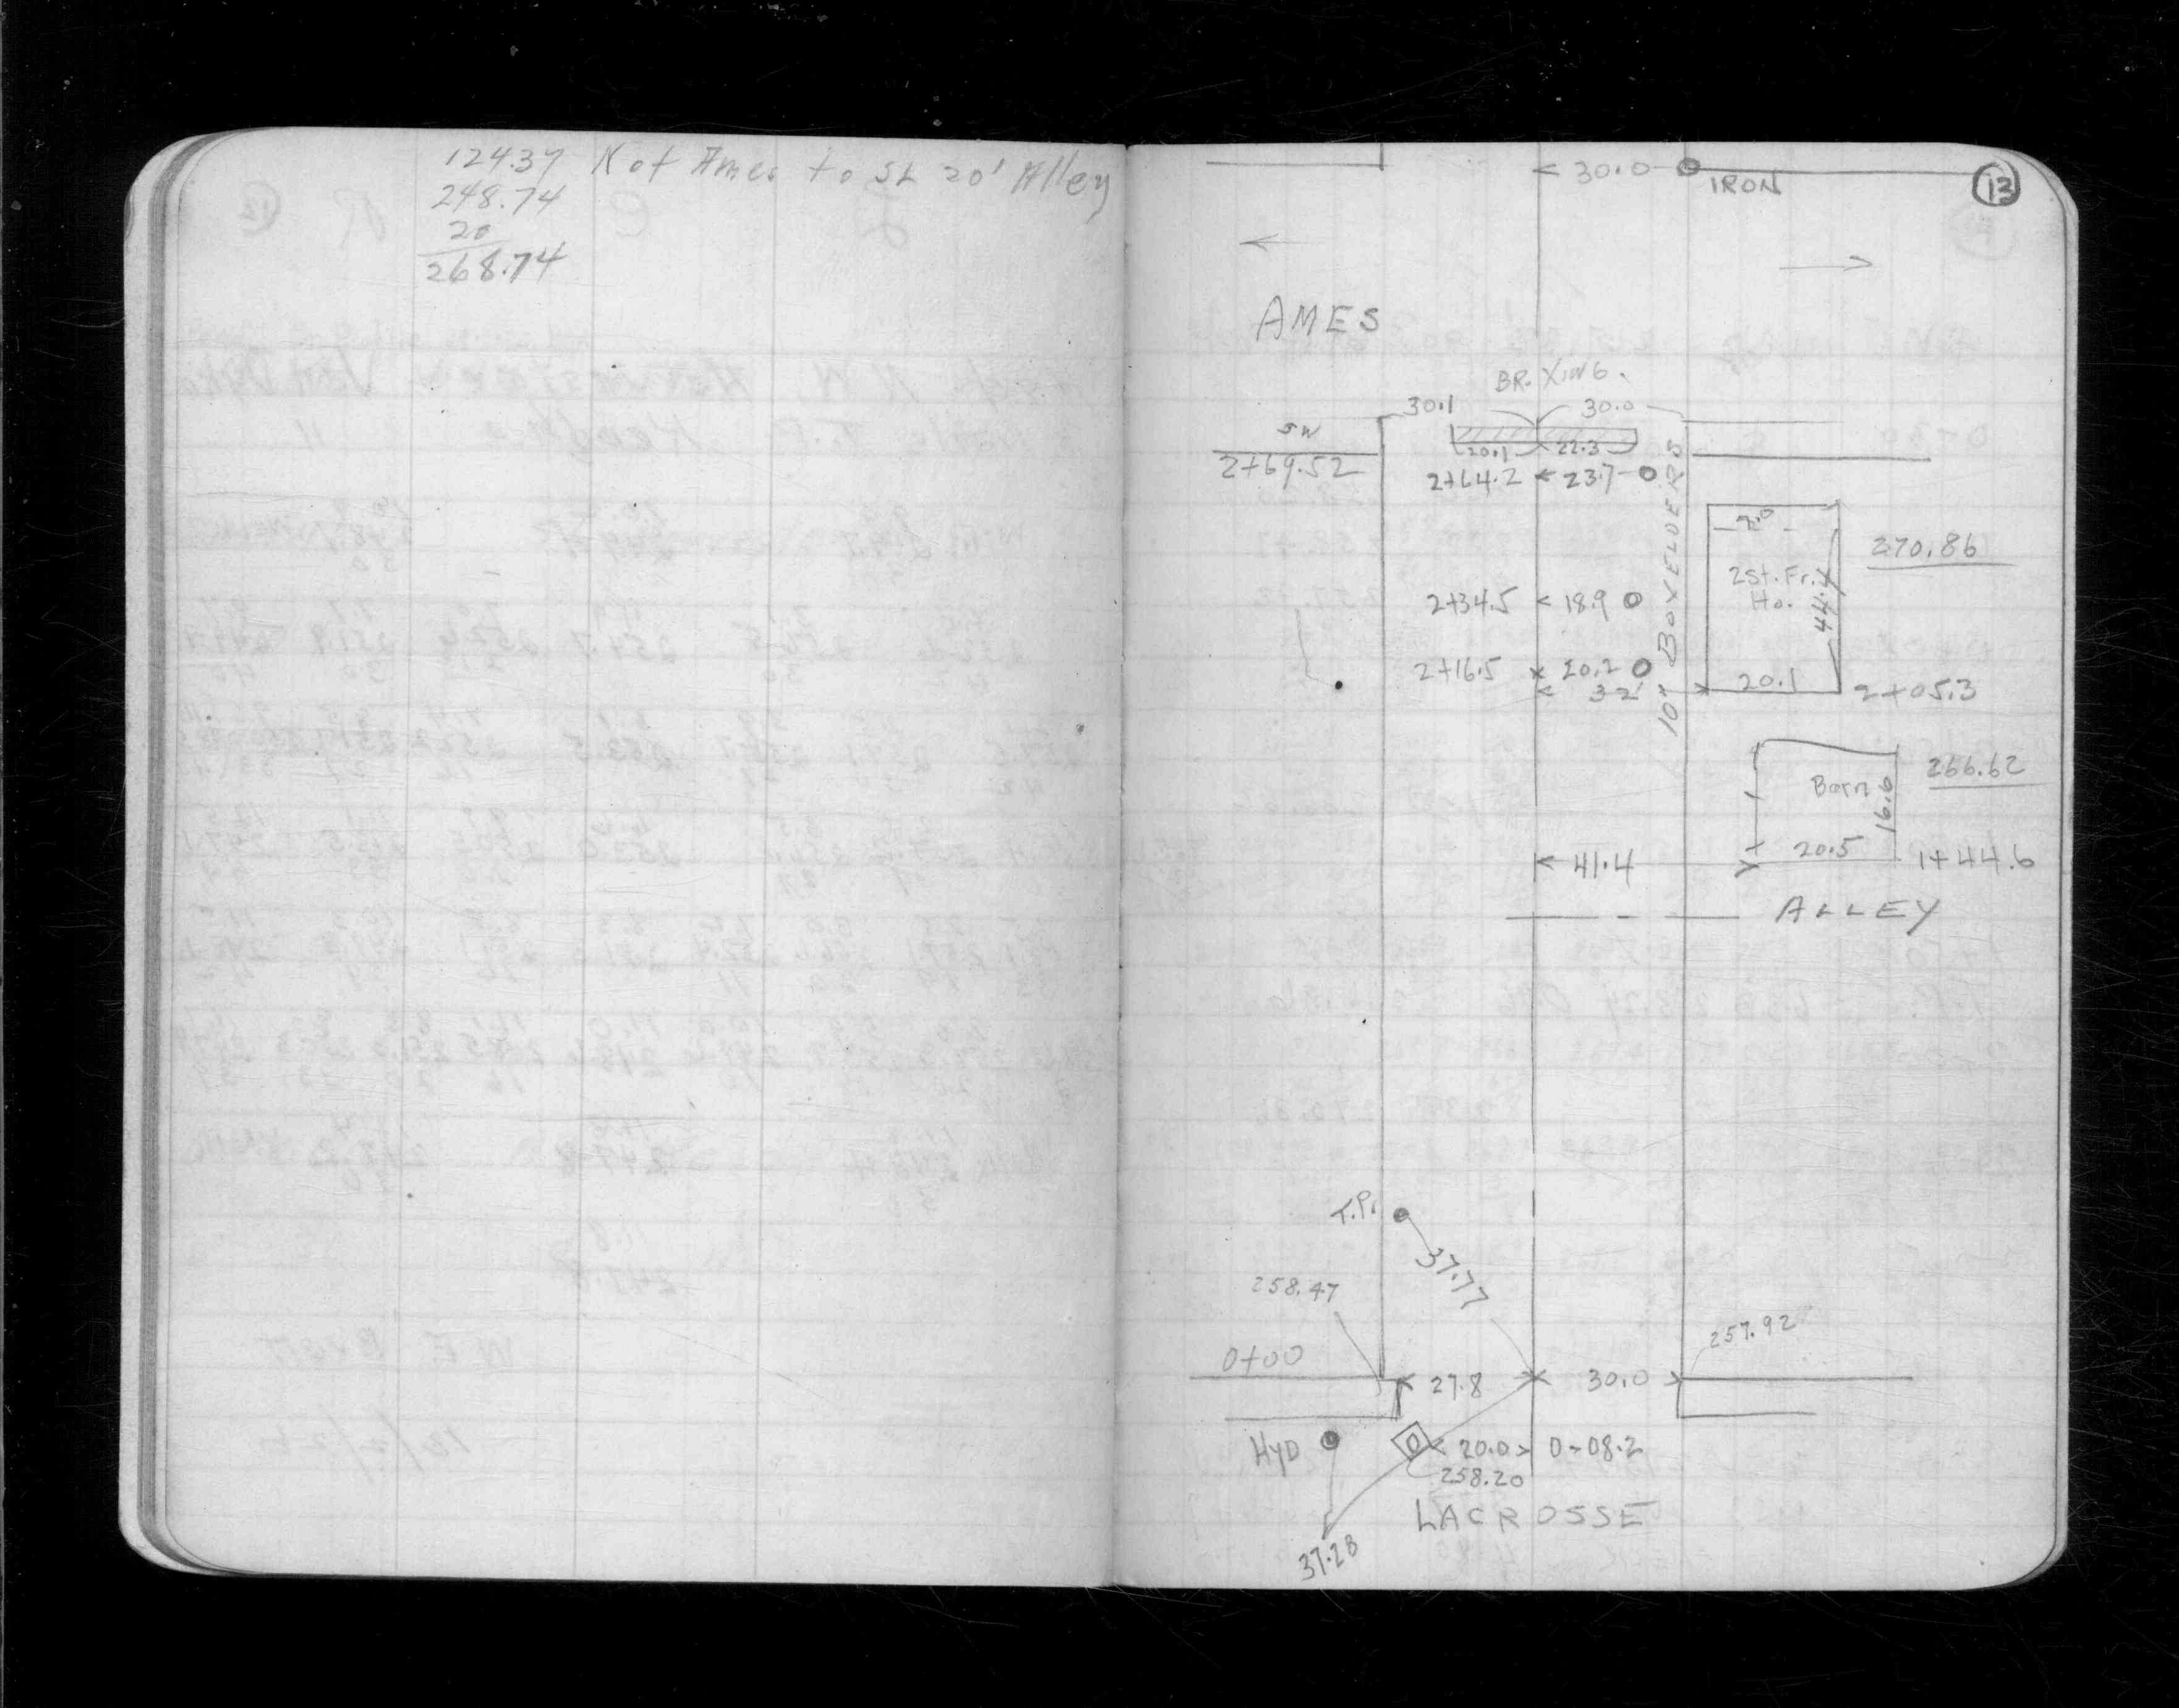 124.37 N of Ames to SL 20' Alley
248.74
20
268.74
30.0
IRON
13
AMES
BR. XING.
30.1
30.0
SW
20.1
22.3
2+69.52
2+64.2
23.7
270.86
2St. Fr.
Ho.
44.4
2+34.5
18.9
10" BOXELDERS
2+16.5
20.2
32
20.1
2+05.3
266.62
Barn
16.6
20.5
41.4
1+44.6
ALLEY
T.P.
37.77
258.47
257.92
0+00
27.8
30.0
HYD
20.0
0-08.2
258.20
LACROSSE
37.28